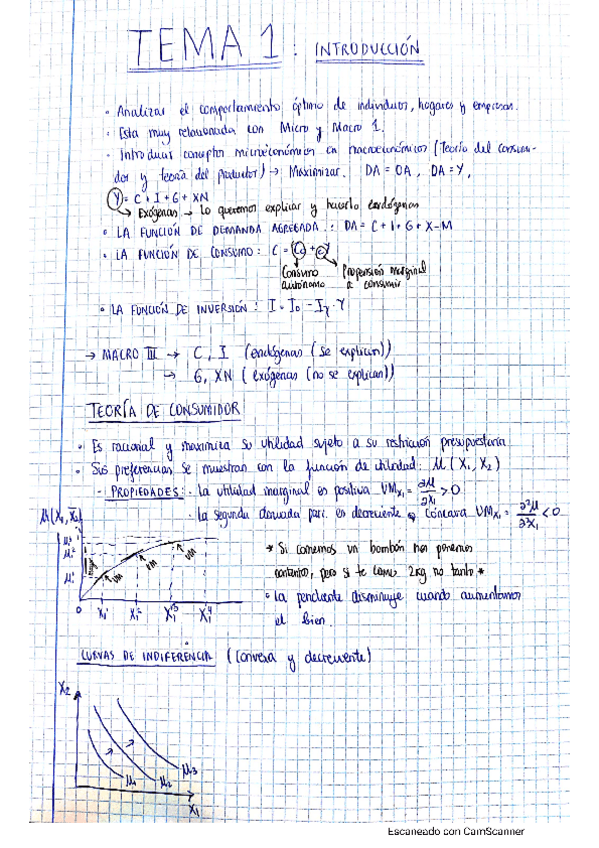 TEMA 1: INTRODUCCIÓN
• Analizar el comportamiento óptimo de individuos, hogares y empresas.
• Esta muy relacionada con Micro y Macro 1.
• Introducir conceptos microeconómicos en macroeconómicos (Teoría del consumi-
dor y teoría del productor) → Maximizar. DA = OA, DA = Y,
Y = C + I + G + XN
→ Exógenas → Lo queremos explicar y hacerlo endógenas
• LA FUNCIÓN DE DEMANDA AGREGADA: DA = C + I + G + X - M
• LA FUNCIÓN DE CONSUMO: C =
Consumo autónomo
Propensión marginal a consumir
• LA FUNCIÓN DE INVERSIÓN: I = I0 - IY · Y
→ MACRO III → C, I (endógenas (se explican))
→ G, XN (exógenas (no se explican))
TEORÍA DE CONSUMIDOR
• Es racional y maximiza su utilidad sujeto a su restricción presupuestaria
• Sus preferencias se muestran con la función de utilidad: U (X1, X2)
- PROPIEDADES: • La utilidad marginal es positiva UMx1 = ∂U/∂X1 > 0
• La segunda derivada es decreciente → cóncava UMx1 = ∂²U/∂X1 < 0
* Si comemos un bombón nos ponemos
contentos, pero si te comes 2kg no tanto *
• La pendiente disminuye cuando aumentamos
el bien.
U(X1, X2)
UM UM UM
0 X1¹ X1² X1³ X1⁴
CURVAS DE INDIFERENCIA (Convexa y decreciente)
X2
U1 U2 U3
X1
Escaneado con CamScanner